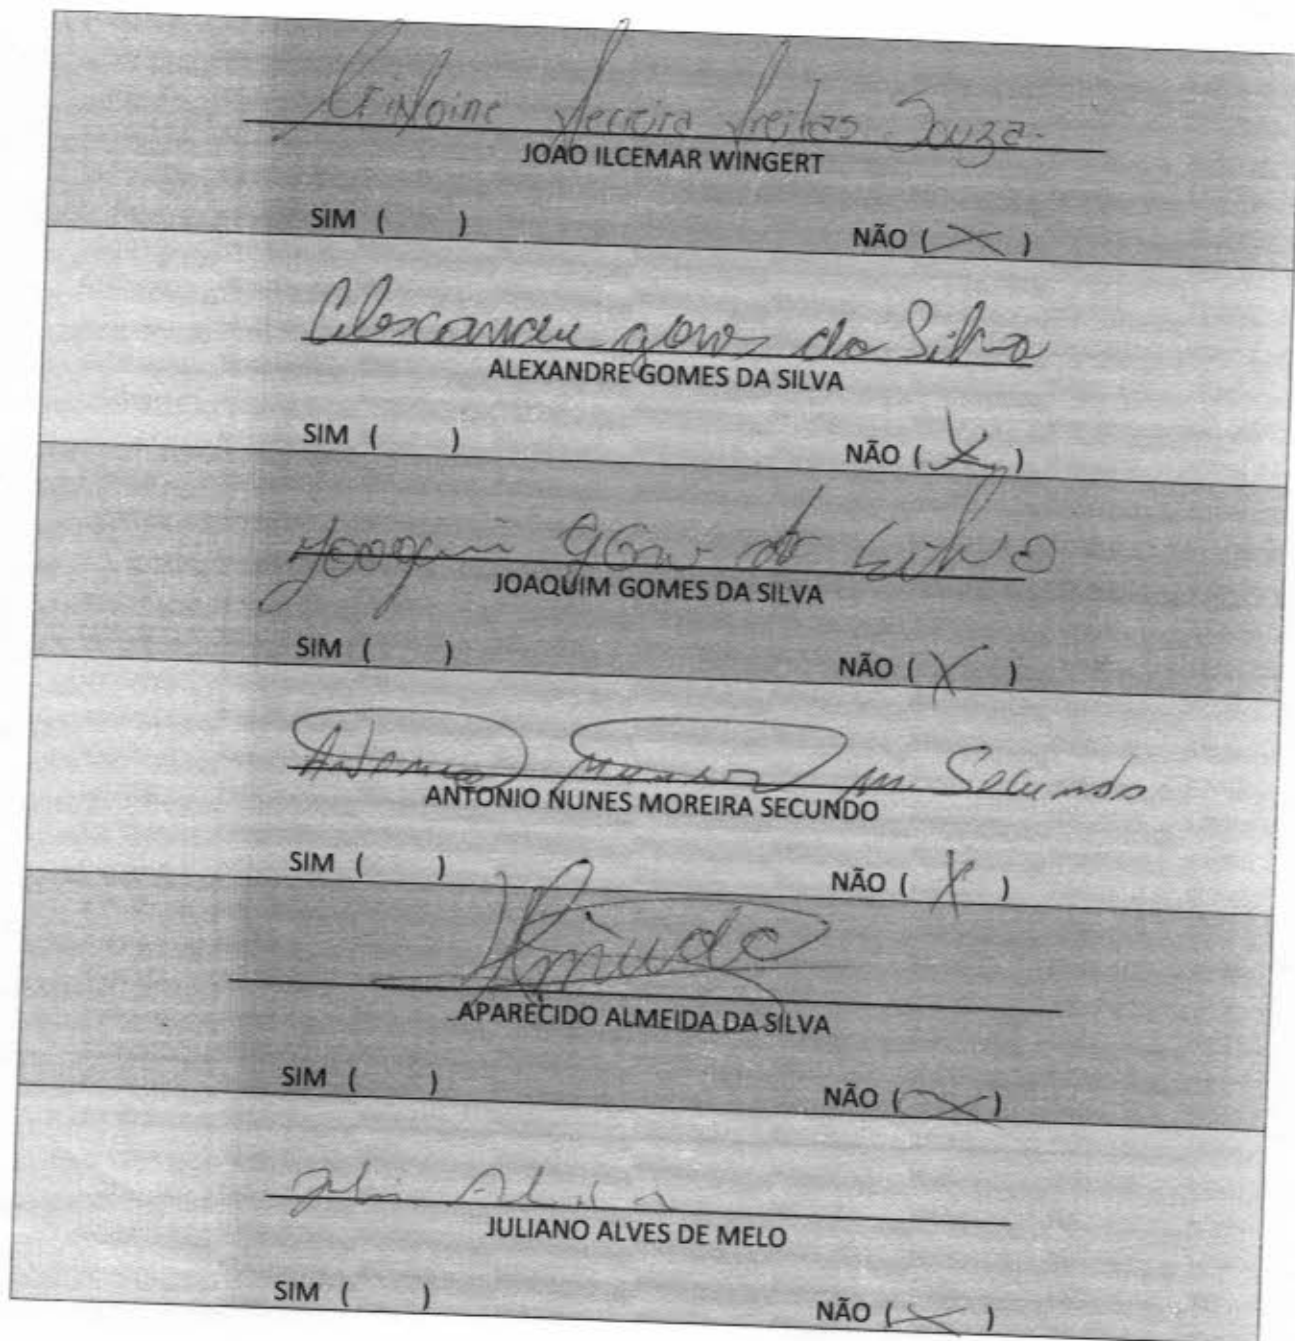 Cristoine Ferreira Freitas Souza.
JOAO ILCEMAR WINGERT
SIM ( ) NÃO (X)
Alexandre gomes da Silva
ALEXANDRE GOMES DA SILVA
SIM ( ) NÃO (X)
Joaquim Gomes da Silva
JOAQUIM GOMES DA SILVA
SIM ( ) NÃO (X)
Antonio Nunes M. Secundo
ANTONIO NUNES MOREIRA SECUNDO
SIM ( ) NÃO (X)
APARECIDO ALMEIDA DA SILVA
SIM ( ) NÃO (X)
JULIANO ALVES DE MELO
SIM ( ) NÃO (X)